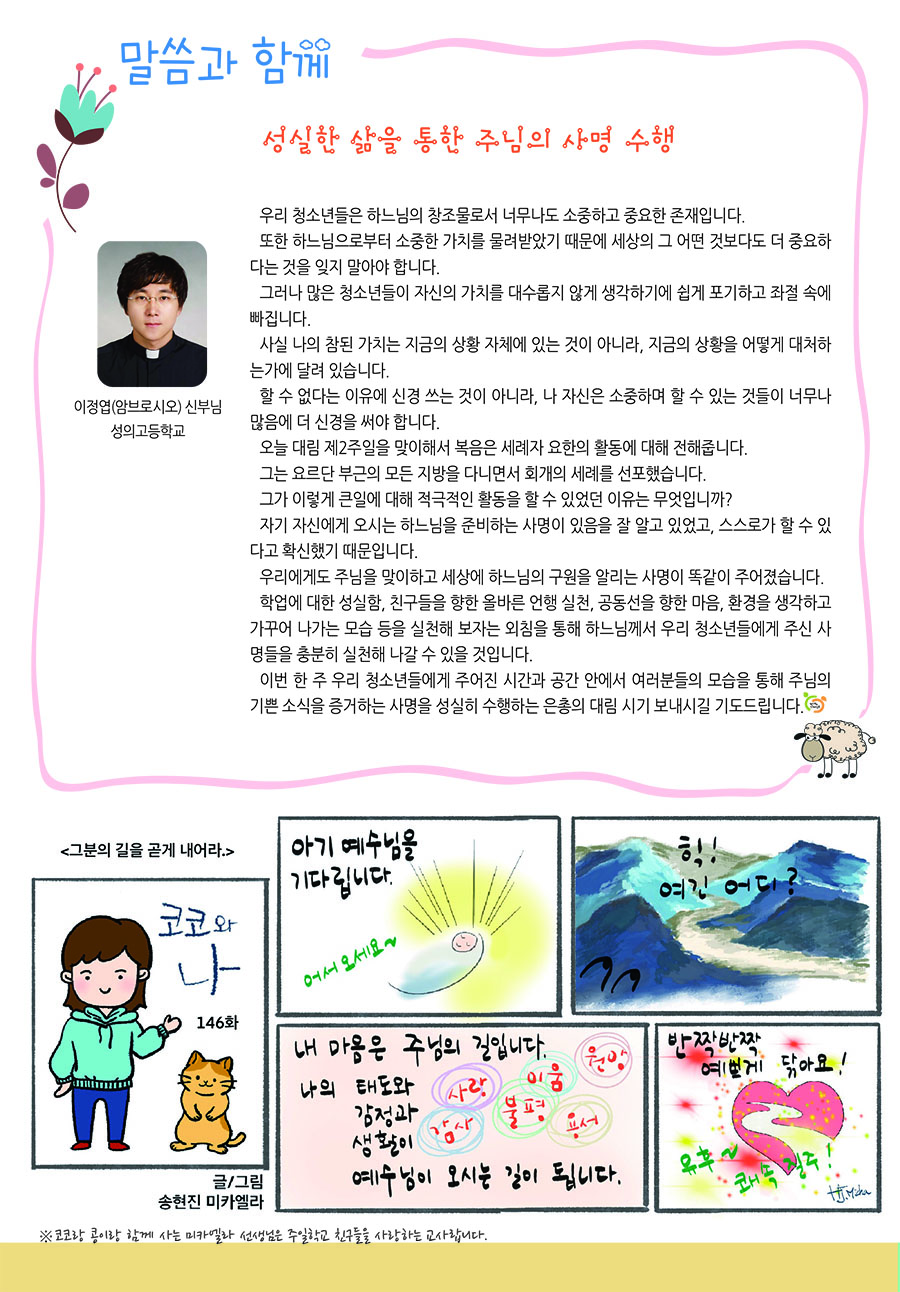 말씀과 함께
성실한 삶을 통한 주님의 사명 수행
이정엽(암브로시오) 신부님
성의고등학교
우리 청소년들은 하느님의 창조물로서 너무나도 소중하고 중요한 존재입니다.
또한 하느님으로부터 소중한 가치를 물려받았기 때문에 세상의 그 어떤 것보다도 더 중요하
다는 것을 잊지 말아야 합니다.
그러나 많은 청소년들이 자신의 가치를 대수롭지 않게 생각하기에 쉽게 포기하고 좌절 속에
빠집니다.
사실 나의 참된 가치는 지금의 상황 자체에 있는 것이 아니라, 지금의 상황을 어떻게 대처하
는가에 달려 있습니다.
할 수 없다는 이유에 신경 쓰는 것이 아니라, 나 자신은 소중하며 할 수 있는 것들이 너무나
많음에 더 신경을 써야 합니다.
오늘 대림 제2주일을 맞이해서 복음은 세례자 요한의 활동에 대해 전해줍니다.
그는 요르단 부근의 모든 지방을 다니면서 회개의 세례를 선포했습니다.
그가 이렇게 큰일에 대해 적극적인 활동을 할 수 있었던 이유는 무엇입니까?
자기 자신에게 오시는 하느님을 준비하는 사명이 있음을 잘 알고 있었고, 스스로가 할 수 있
다고 확신했기 때문입니다.
우리에게도 주님을 맞이하고 세상에 하느님의 구원을 알리는 사명이 똑같이 주어졌습니다.
학업에 대한 성실함, 친구들을 향한 올바른 언행 실천, 공동선을 향한 마음, 환경을 생각하고
가꾸어 나가는 모습 등을 실천해 보자는 외침을 통해 하느님께서 우리 청소년들에게 주신 사
명들을 충분히 실천해 나갈 수 있을 것입니다.
이번 한 주 우리 청소년들에게 주어진 시간과 공간 안에서 여러분들의 모습을 통해 주님의
기쁜 소식을 증거하는 사명을 성실히 수행하는 은총의 대림 시기 보내시길 기도드립니다.
<그분의 길을 곧게 내어라.>
코코와
나
146화
글/그림
송현진 미카엘라
아기 예수님을
기다립니다.
어서 오세요~
헉!
여긴 어디?
내 마음은 주님의 길입니다.
나의 태도와
감정과
생활이
예수님이 오시는 길이 됩니다.
사랑
미움
원망
감사
불평
용서
반짝반짝
예쁘게 닦아요!
유후~
쾌속 질주!
※코코랑 콩이랑 함께 사는 미카엘라 선생님은 주일학교 친구들을 사랑하는 교사랍니다.